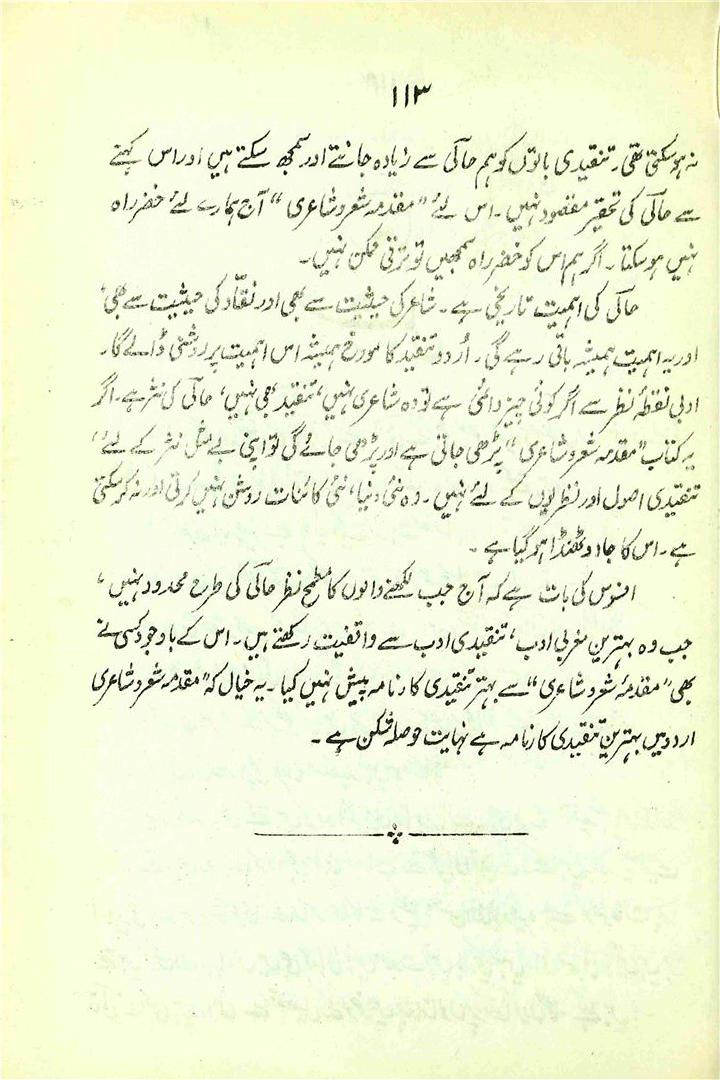 ۱۱۳
نہ ہو سکتی تھی۔ تنقیدی باتوں کو ہم حالی سے زیادہ جانتے اور سمجھ سکتے ہیں اور اس کہنے
سے حالی کی تحقیر مقصود نہیں۔ اس لئے "مقدمہ شعر و شاعری" آج ہمارے لئے خضر راہ
نہیں ہو سکتا۔ اگر ہم اس کو خضر راہ سمجھیں تو ترقی ممکن نہیں۔
حالی کی اہمیت تاریخی ہے۔ شاعر کی حیثیت سے بھی اور نقّاد کی حیثیت سے بھی،
اور یہ اہمیت ہمیشہ باقی رہے گی۔ اُردو تنقید کا مورخ ہمیشہ اس اہمیت پر روشنی ڈالے گا۔
ادبی نقطۂ نظر سے اگر کوئی چیز دائمی ہے تو وہ شاعری نہیں، تنقید بھی نہیں، حالی کی نثر ہے۔ اگر
یہ کتاب "مقدمہ شعر و شاعری" پڑھی جاتی ہے اور پڑھی جائے گی تو اپنی بے مثل نثر کے لئے،
تنقیدی اصول اور نظریوں کے لئے نہیں۔ وہ نئی دنیا، نئی کائنات روشن نہیں کرتی اور نہ کر سکتی
ہے۔ اس کا جادو ٹھنڈا ہو گیا ہے۔
افسوس کی بات ہے کہ آج جب لکھنے والوں کا مطمح نظر حالی کی طرح محدود نہیں،
جب وہ بہترین مغربی ادب، تنقیدی ادب سے واقفیت رکھتے ہیں۔ اس کے باوجود کسی نے
بھی "مقدمۂ شعر و شاعری" سے بہتر تنقیدی کارنامہ پیش نہیں کیا۔ یہ خیال کہ "مقدمہ شعر و شاعری
اردو میں بہترین تنقیدی کارنامہ ہے نہایت حوصلہ شکن ہے۔